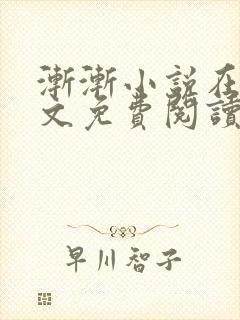 漸漸小説在
文免費閱讀
早川智子